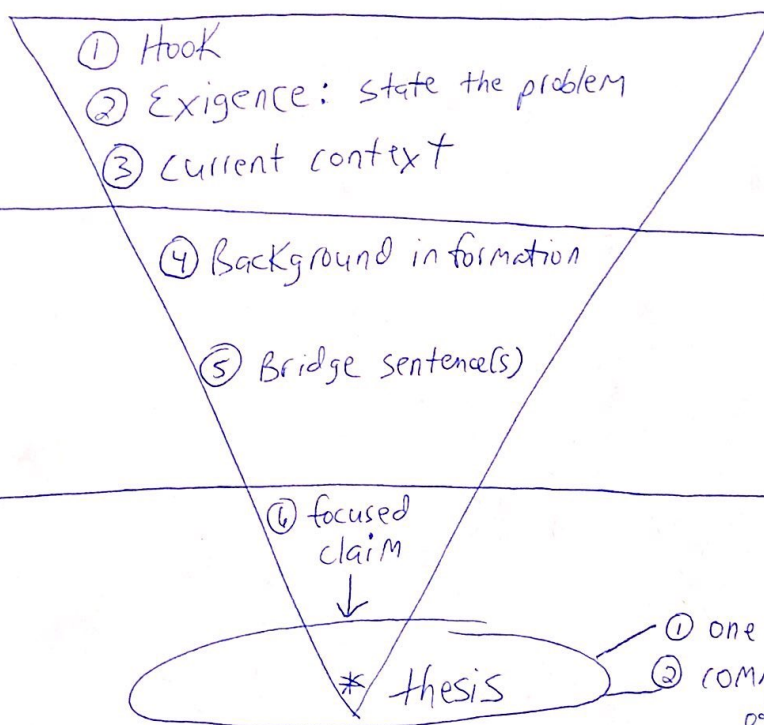 ① Hook
② Exigence: state the problem
③ current context
④ Background information
⑤ Bridge sentence(s)
⑥ focused
claim
* thesis
① one
②